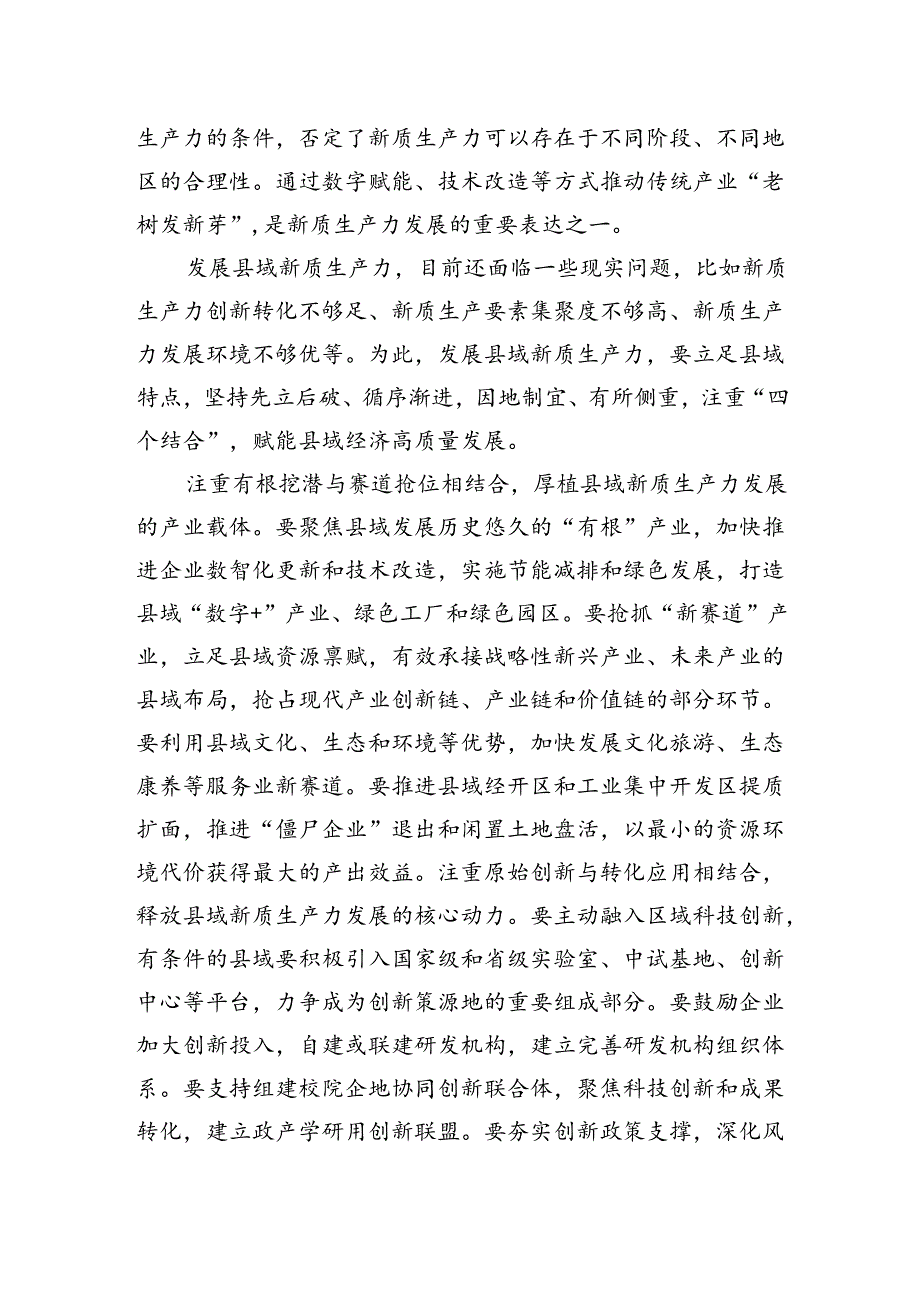 生产力的条件，否定了新质生产力可以存在于不同阶段、不同地
区的合理性。通过数字赋能、技术改造等方式推动传统产业“老
树发新芽”,是新质生产力发展的重要表达之一。
发展县域新质生产力，目前还面临一些现实问题，比如新质
生产力创新转化不够足、新质生产要素集聚度不够高、新质生产
力发展环境不够优等。为此，发展县域新质生产力，要立足县域
特点，坚持先立后破、循序渐进，因地制宜、有所侧重，注重“四
个结合”，赋能县域经济高质量发展。
注重有根挖潜与赛道抢位相结合，厚植县域新质生产力发展
的产业载体。要聚焦县域发展历史悠久的“有根”产业，加快推
进企业数智化更新和技术改造，实施节能减排和绿色发展，打造
县域“数字+”产业、绿色工厂和绿色园区。要抢抓“新赛道”产
业，立足县域资源禀赋，有效承接战略性新兴产业、未来产业的
县域布局，抢占现代产业创新链、产业链和价值链的部分环节。
要利用县域文化、生态和环境等优势，加快发展文化旅游、生态
康养等服务业新赛道。要推进县域经开区和工业集中开发区提质
扩面，推进“僵尸企业”退出和闲置土地盘活，以最小的资源环
境代价获得最大的产出效益。注重原始创新与转化应用相结合，
释放县域新质生产力发展的核心动力。要主动融入区域科技创新，
有条件的县域要积极引入国家级和省级实验室、中试基地、创新
中心等平台，力争成为创新策源地的重要组成部分。要鼓励企业
加大创新投入，自建或联建研发机构，建立完善研发机构组织体
系。要支持组建校院企地协同创新联合体，聚焦科技创新和成果
转化，建立政产学研用创新联盟。要夯实创新政策支撑，深化风